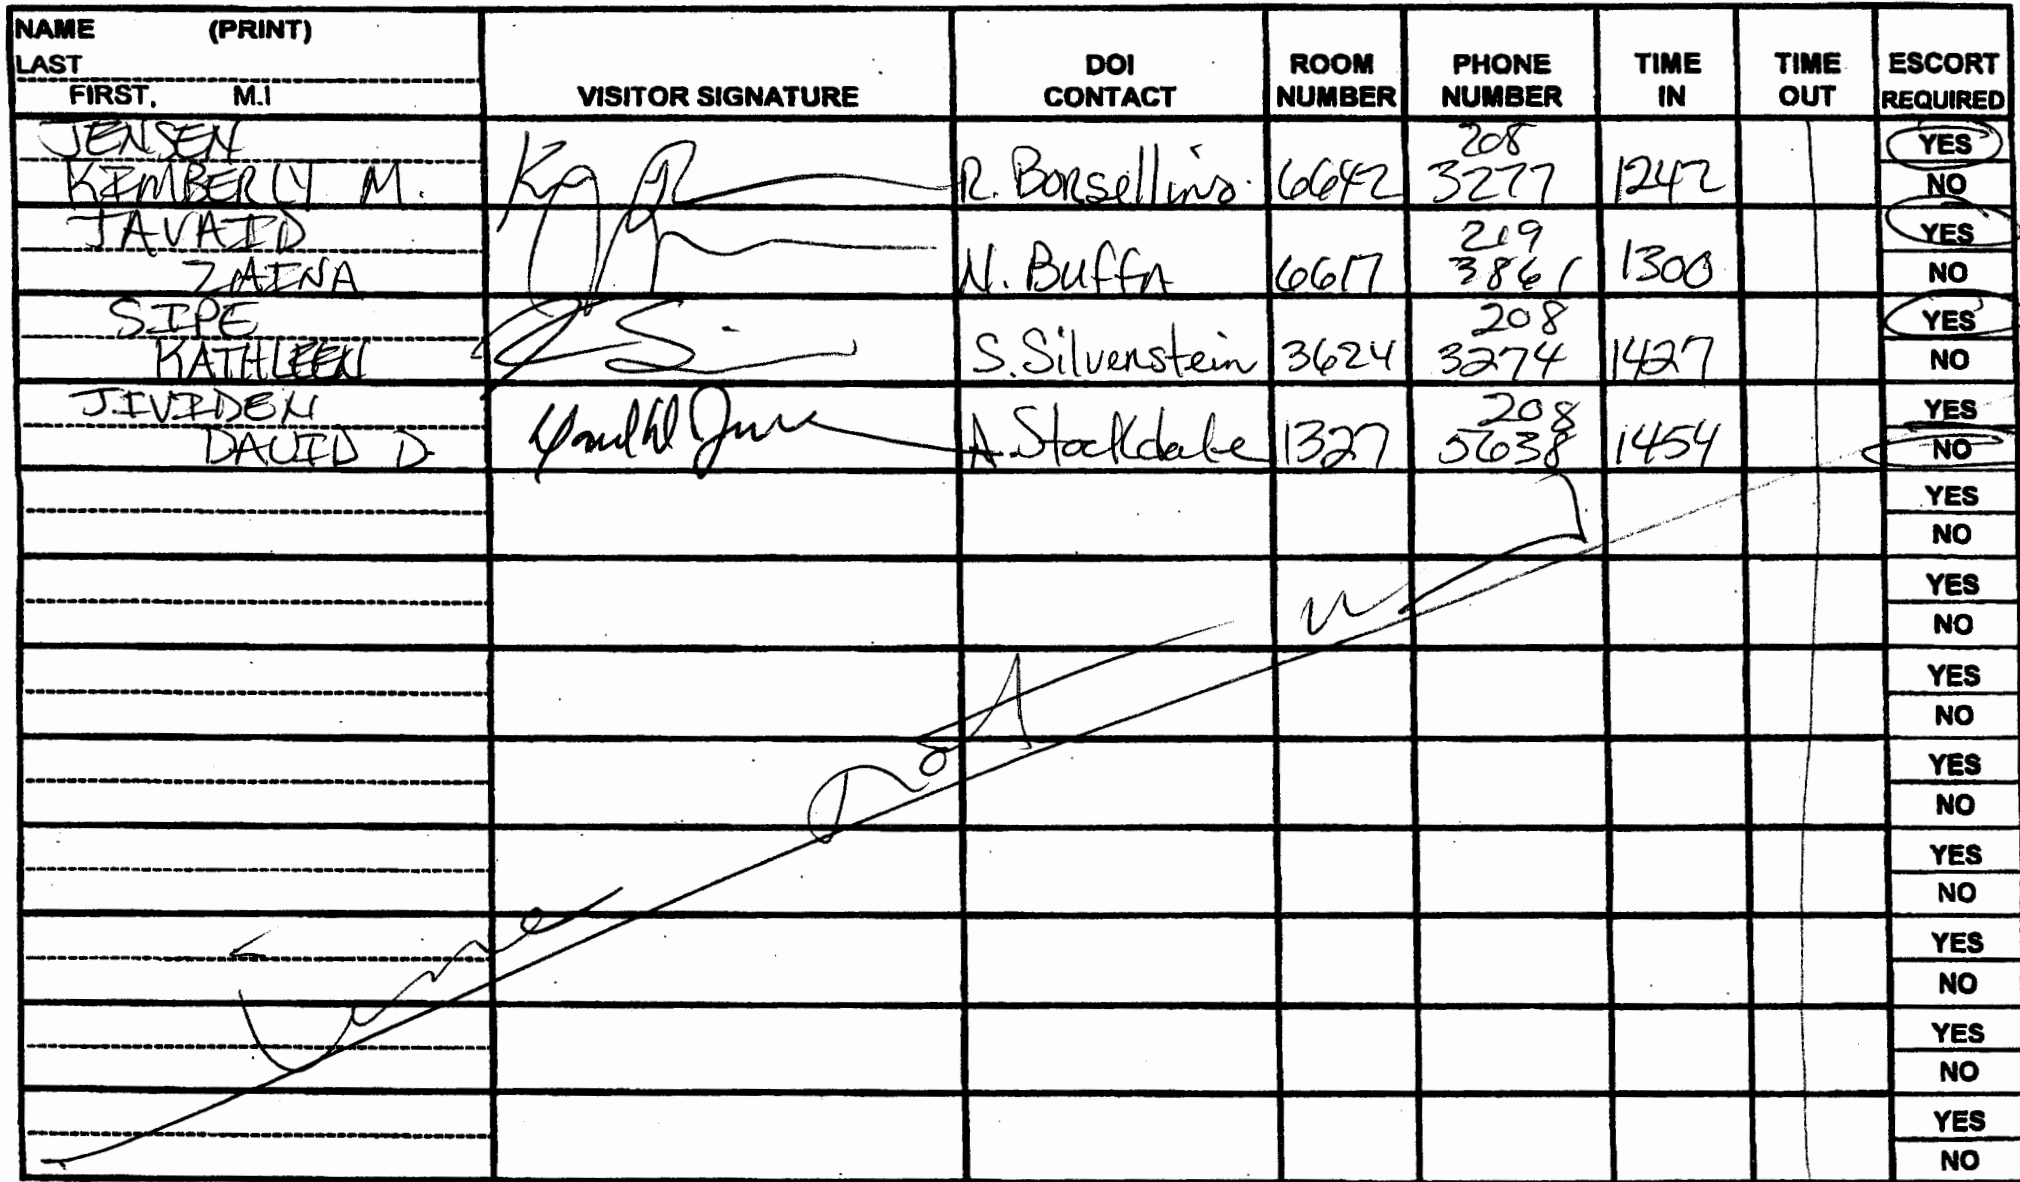 NAME (PRINT)
LAST
FIRST, M.I
VISITOR SIGNATURE
DOI
CONTACT
ROOM
NUMBER
PHONE
NUMBER
TIME
IN
TIME
OUT
ESCORT
REQUIRED
JENSEN
KIMBERLY M.
R. Borsellino
6642
208
3277
1242
YES
NO
JAVAID
ZAINA
N. Buffa
6617
219
3861
1300
YES
NO
SIPE
KATHLEEN
S. Silverstein
3624
208
3274
1427
YES
NO
JIVIDEN
DAVID D.
A. Stockdale
1327
208
5638
1454
YES
NO
YES
NO
YES
NO
YES
NO
YES
NO
YES
NO
YES
NO
YES
NO
YES
NO